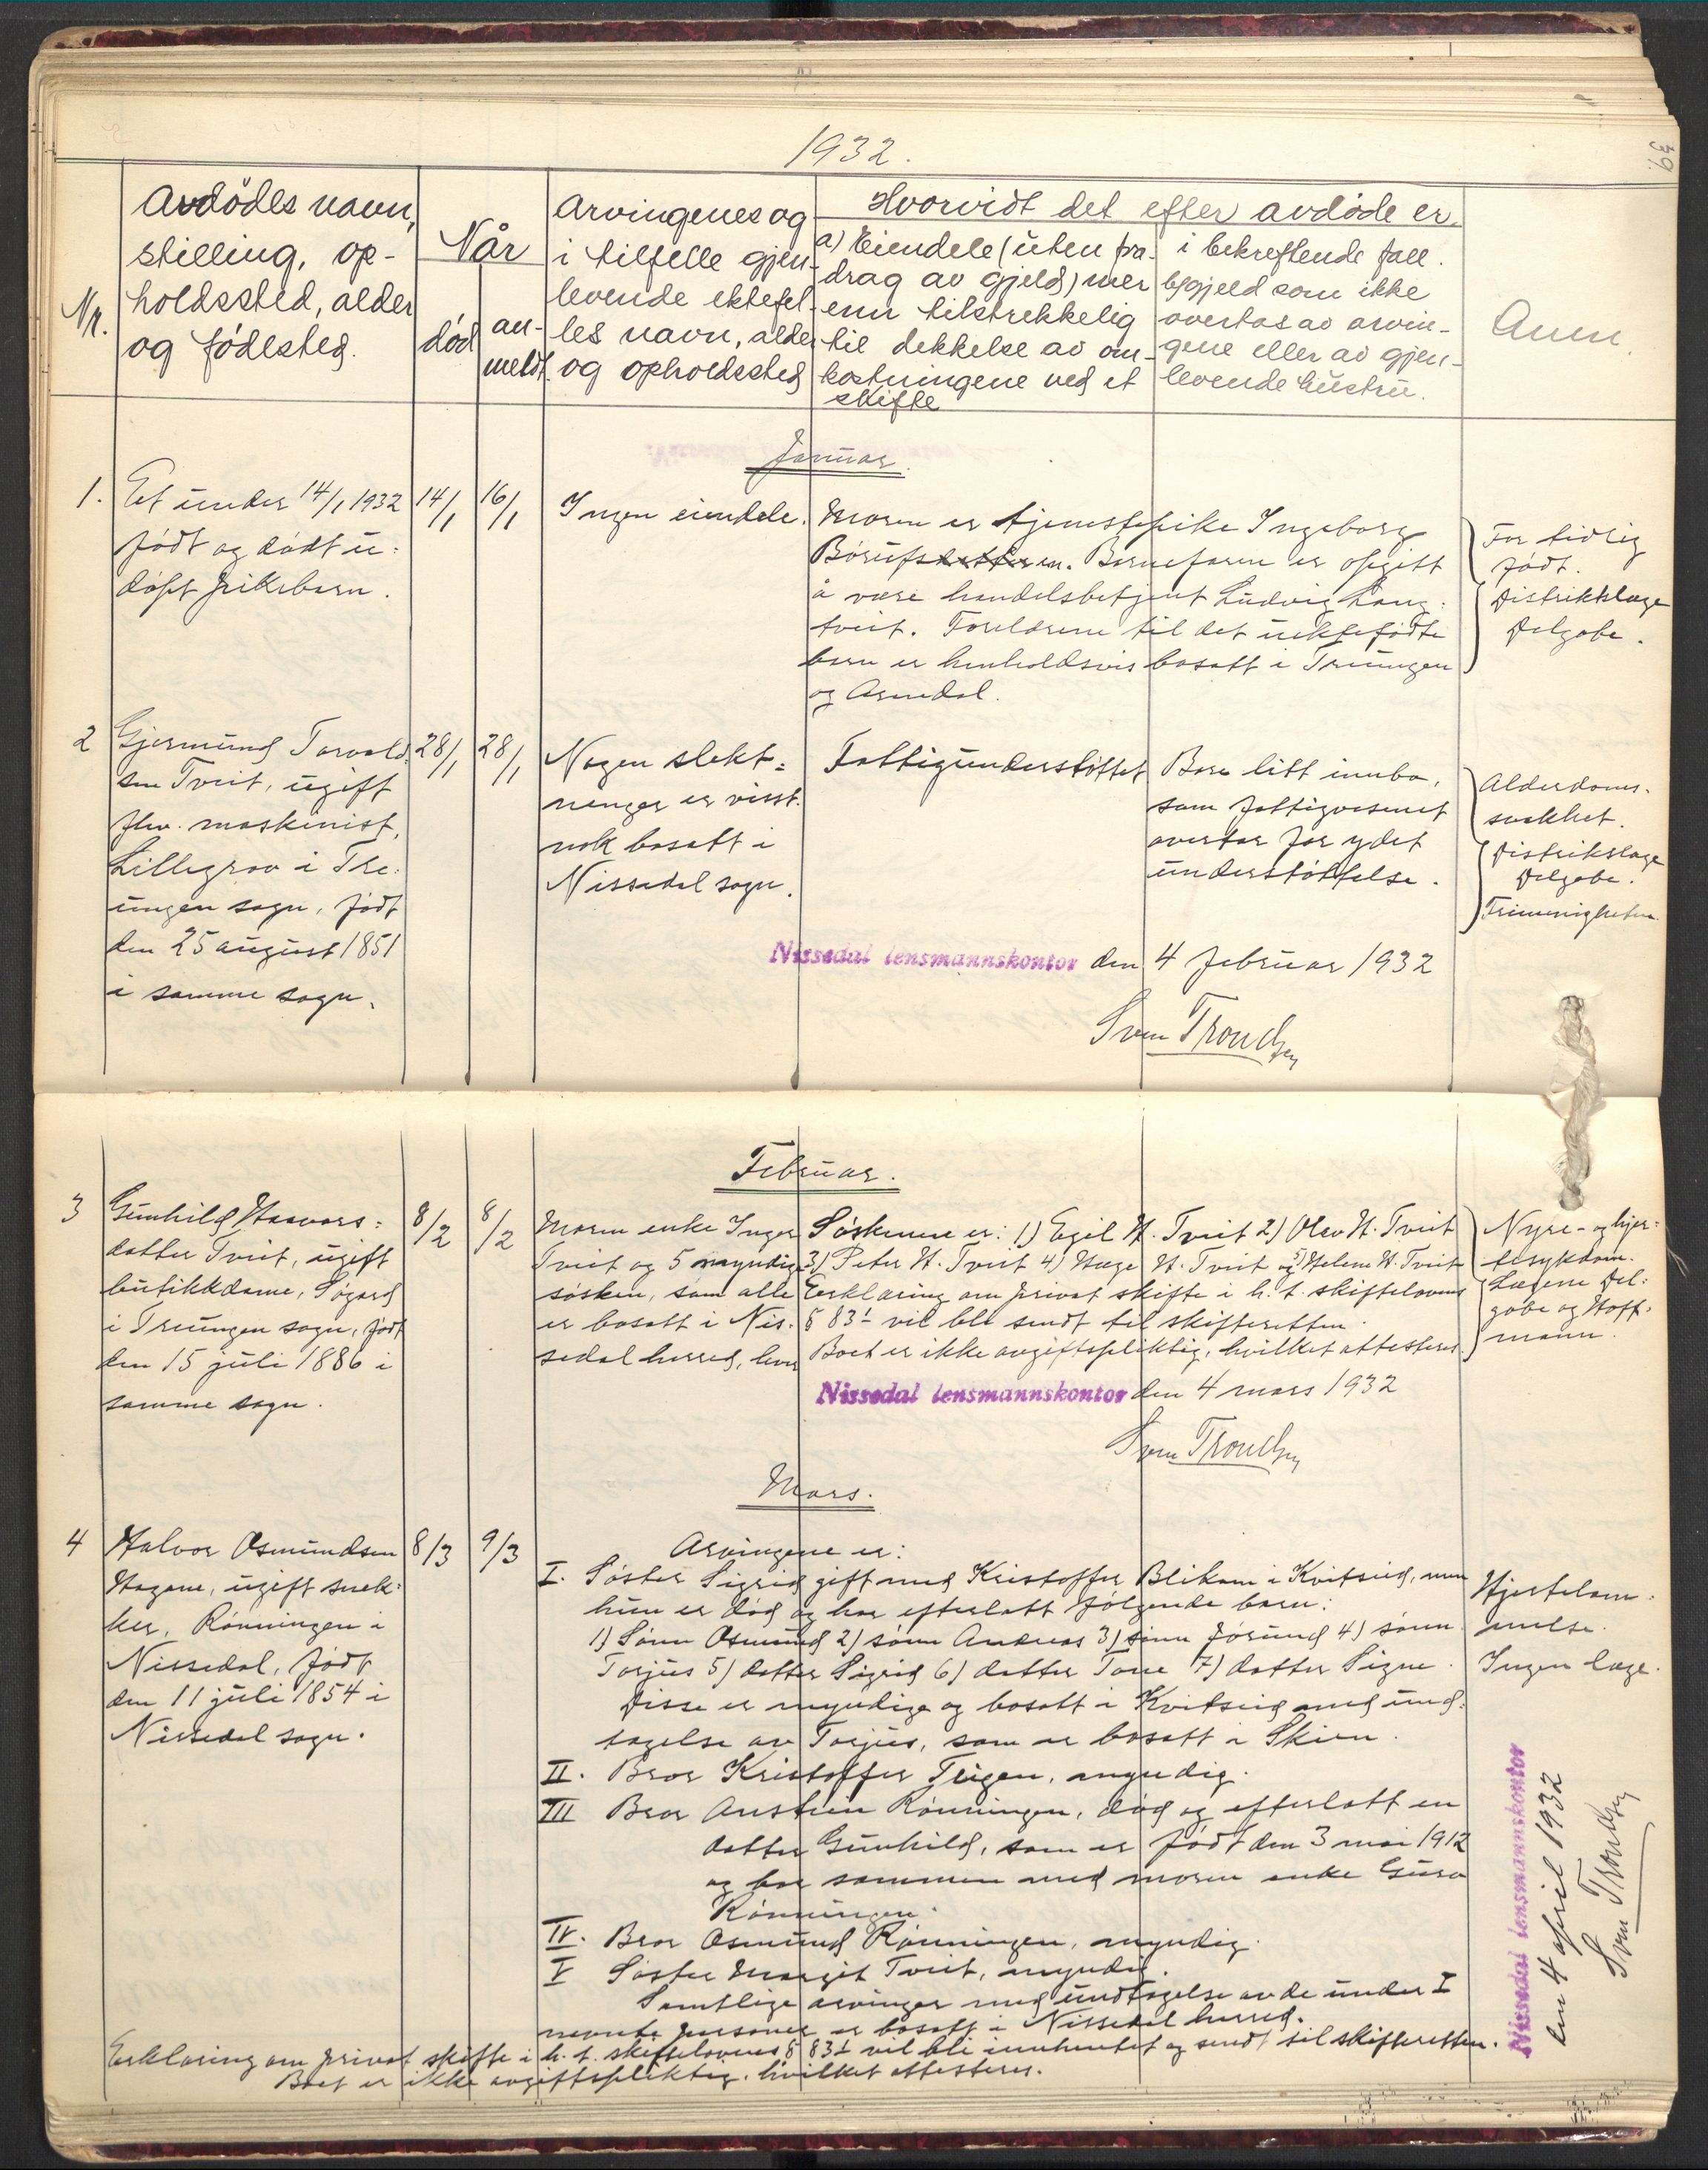 1932.
39.
Nr.
Avdödes navn,
stilling, op-
holdssted, alder
og födested.
Når
död
an-
meldt.
Arvingenes og
i tilfelle gjen-
levende ektefel-
les navn, alder
og opholdssted
Hvorvidt det efter avdöde er
a) Eiendele (uten fra-
drag av gjeld) mer
enn tilstrekkelig
til dekkelse av om-
kostningene ved et
skifte
i bekreftende fall.
b) gjeld som ikke
overtas av arvin-
gene eller av gjen-
levende hustru.
Anm.
Januar.
1.
Et under 14/1 1932
født og dødt u=
døpt pikebarn.
14/1
16/1
Ingen eiendele.
Moren er tjenestepike Ingeborg
Barnefaren er opgitt
å være handelsbetjent Ludvig Lang=
tveit. Foreldrene til det uektefødte
barn er henholdsvis bosatt i Treungen
og Arendal.
For tidlig
født.
Distriktslæge
Delgobe.
2
Gjermund Torvald
sen Tveit, ugift
fhv. maskinist,
Lillegrav i Tre=
ungen sogn, født
den 25 august 1851
i samme sogn.
28/1
28/1
Nogen slekt=
ninger er visst=
nok bosatt i
Nissedal sogn.
Fattigunderstøttet
Bare litt innbo,
som fattigvesenet
overtar for ydet
understøttelse.
Alderdoms-
svakhet.
Distriktslæge
Delgobe.
Nissedal lensmannskontor den 4 februar 1932
Sven Trondsen
Februar.
3
Gunhild Haavors=
datter Tveit, ugift
butikkdame, Søgard
i Treungen sogn, født
den 15 juli 1886 i
samme sogn.
8/2
8/2
Moren enke Inger
Tveit og 5 myndige
søsken, som alle
er bosatt i Nis=
sedal herred, hver
Søsknene er: 1) Egil H. Tveit 2) Olav H. Tveit
3) Peter H. Tveit 4) Hæge H. Tveit og 5) Helene H. Tveit
Erklæring om privat skifte i h. t. skiftelovens
§ 83 vil bli sendt til skifteretten.
Boet er ikke avgiftspliktig, hvilket attesteres.
Nyre- og hjer=
tesykdom.
Lægene Del=
gobe og Hoff=
mann.
Nissedal lensmannskontor den 4 mars 1932
Sven Trondsen
Mars.
4
Halvor Osmundsen
Hagane, ugift snek=
ker, Rønningen i
Nissedal, født
den 11 juli 1854 i
Nissedal sogn.
8/3
9/3
Arvingene er:
I. Søster Sigrid gift med Kristoffer Blikom i Kvitseid, men
hun er død og har efterlatt følgende barn:
1) Sønn Osmund 2) sønn Andreas 3) sønn Jørund 4) sønn
Torjus 5) datter Sigrid 6) datter Tone 7) datter Signe.
Disse er myndige og bosatt i Kvitseid med und=
tagelse av Torjus, som er bosatt i Skien.
II. Bror Kristoffer Teigen, myndig.
III Bror Anstein Rønningen, død og efterlatt en
datter Gunhild, som er født den 3 mai 1912
og bor sammen med moren enke Guro
Rønningen.
IV. Bror Osmund Rønningen, myndig.
V Søster Margit Tveit, myndig.
Samtlige arvinger med undtagelse av de under I
nevnte personer er bosatt i Nissedal herred.
Erklæring om privat skifte i h. t. skiftelovens § 83 vil bli innhentet og sendt til skifteretten.
Boet er ikke avgiftspliktig, hvilket attesteres.
Hjertelam=
melse.
Ingen læge.
Nissedal lensmannskontor
den 4 april 1932
Sven Trondsen